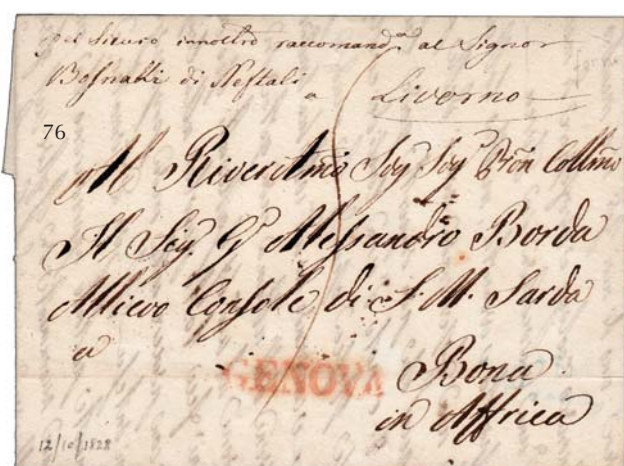 pel sicuro innoltro raccomand.ta al Signor
di Neftali a Livorno
76
Al Riveritmo Sigr Sigr Pron Collmo
Il Sigr Gr Alessandro Borda
Allievo Console di S. M. Sarda
a
GENOVA
Bona
in Affrica
12/10/1828